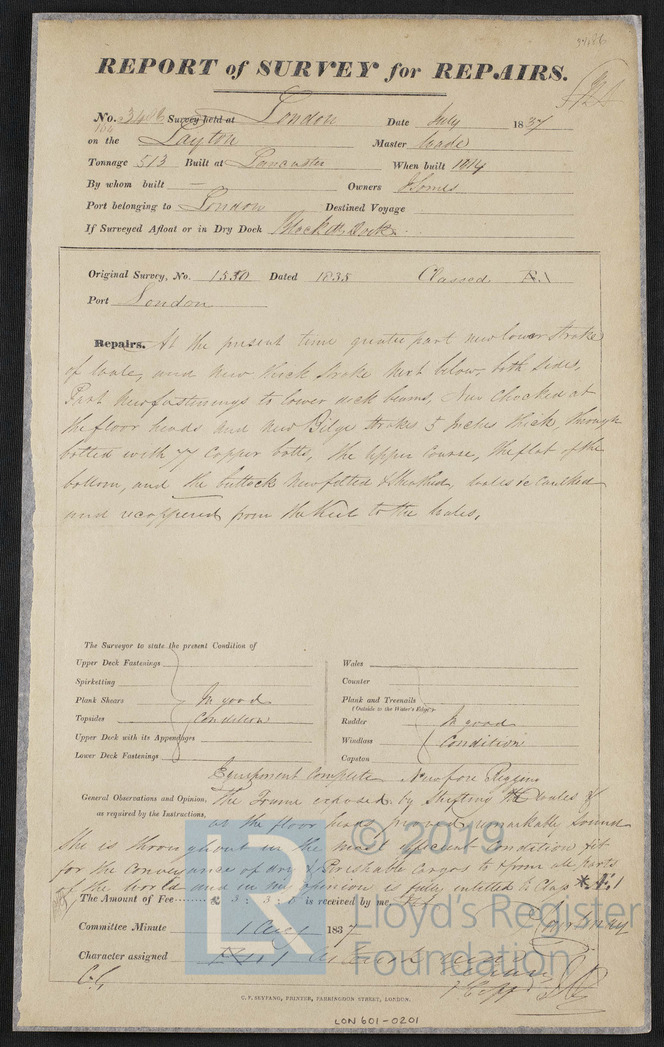 REPORT of SURVEY for REPAIRS.
No. 3406 Survey held at London Date July 1837
on the Layton Master Wade
Tonnage 513 Built at Lancaster When built 1814
By whom built — Owners Somes
Port belonging to London Destined Voyage
If Surveyed Afloat or in Dry Dock Dock
Original Survey, No. 1530 Dated 1835 Classed
Port London
Repairs. At the present time greater part new lower Strake
of Wale, and new thick Strake next below, both sides,
Part New fastenings to lower deck beams, New Chocked at
the floor heads and new Bilge Strakes 5 Inches thick through
bolted with 77 Copper bolts, the upper Course, the flat of the
bottom, and the buttock New felted & Sheathed, Wales &c Caulked
and recoppered from the Keel to the Wales,
The Surveyor to state the present Condition of
Upper Deck Fastenings
Spirketting
Plank Shears In good
Topsides Condition
Upper Deck with its Appendages
Lower Deck Fastenings
Wales
Counter
Plank and Treenails
(Outside to the Water's Edge)
Rudder In good
Windlass Condition
Capston
Equipment Complete New fore Rigging
General Observations and Opinion, The Frame exposed by Shifting the Wales &
as required by the Instructions, at the floor heads proved remarkably Sound
She is throughout in the most efficient Condition fit
for the Conveyance of dry & Perishable Cargos to & from all parts
of the World and in his opinion is fully entitled to Class
The Amount of Fee £ 3 : 3 : 0 is received by me,
Committee Minute 1 Aug 1837
Character assigned
C. F. SEYFANG, PRINTER, FARRINGDON STREET, LONDON.
LON 601-0201
LR
© 2019
Lloyd's Register
Foundation